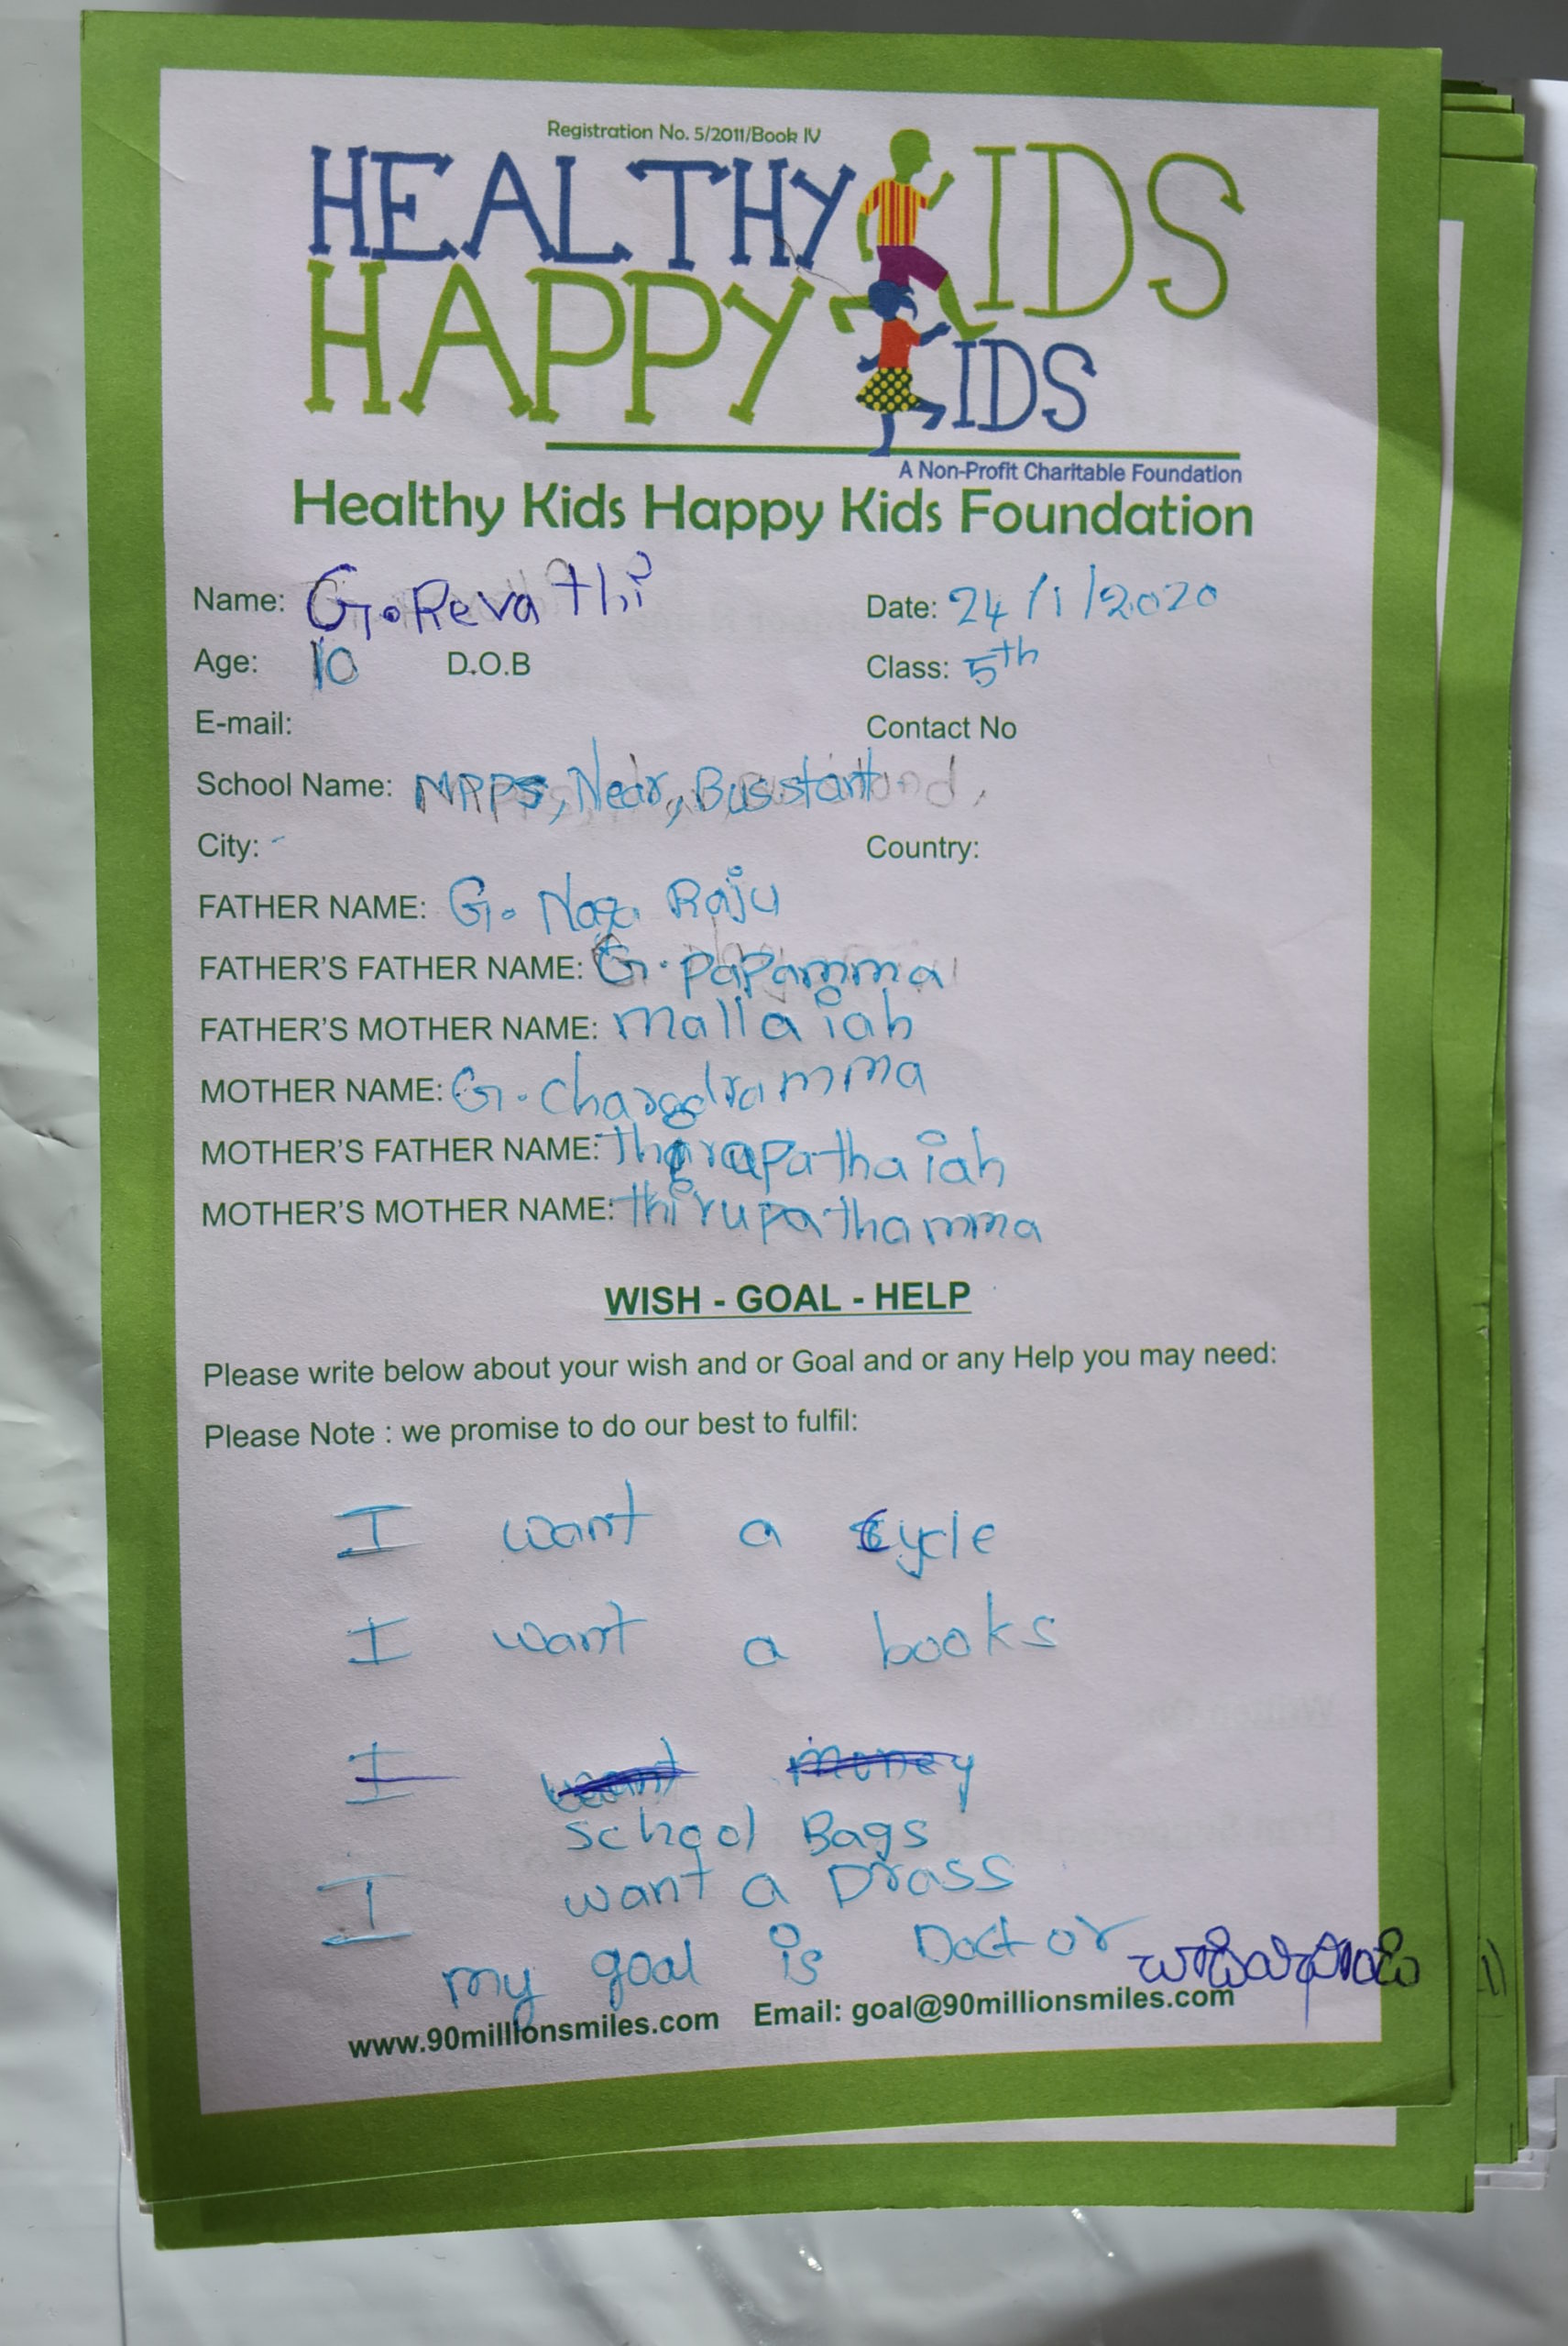 Registration No. 5/2011/Book IV
HEALTHY KIDS
HAPPY KIDS
A Non-Profit Charitable Foundation
Healthy Kids Happy Kids Foundation
Name: G. Revathi Date: 24/1/2020
Age: 10 D.O.B Class: 5th
E-mail: Contact No
School Name: MPPS, Near, Bus
City: - Country:
FATHER NAME: G. Naga Raju
FATHER'S FATHER NAME: G. Papamma
FATHER'S MOTHER NAME: mallaiah
MOTHER NAME: G.
MOTHER'S FATHER NAME:
MOTHER'S MOTHER NAME: thirupathamma
WISH - GOAL - HELP
Please write below about your wish and or Goal and or any Help you may need:
Please Note : we promise to do our best to fulfil:
I want a cycle
I want a books
I want money
school Bags
I want a Drass
my goal is Doctor
www.90millionsmiles.com Email: goal@90millionsmiles.com